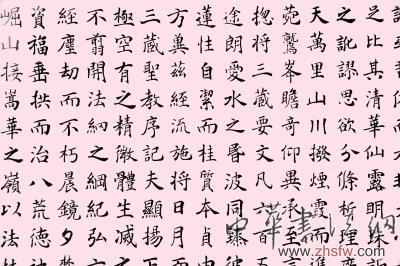 足比其清華仙露明珠
之訛謬思欲分條析理
天萬里山川撥煙霞而進
菀鷲峯瞻奇仰異承至言
惣將三藏要文凡六百五
途朗愛水之昏波同臻彼
蓮性自潔而桂質本貞
方冀茲經流施將日月
三藏聖教序記夫顯揚
極空有之精微體生滅
不翦開法網之綱紀弘
經塵劫而不朽晨鏡夕
資福垂拱而治八荒德
崛山接嵩華之嶺以法
中華書法網
www.zhsfw.com